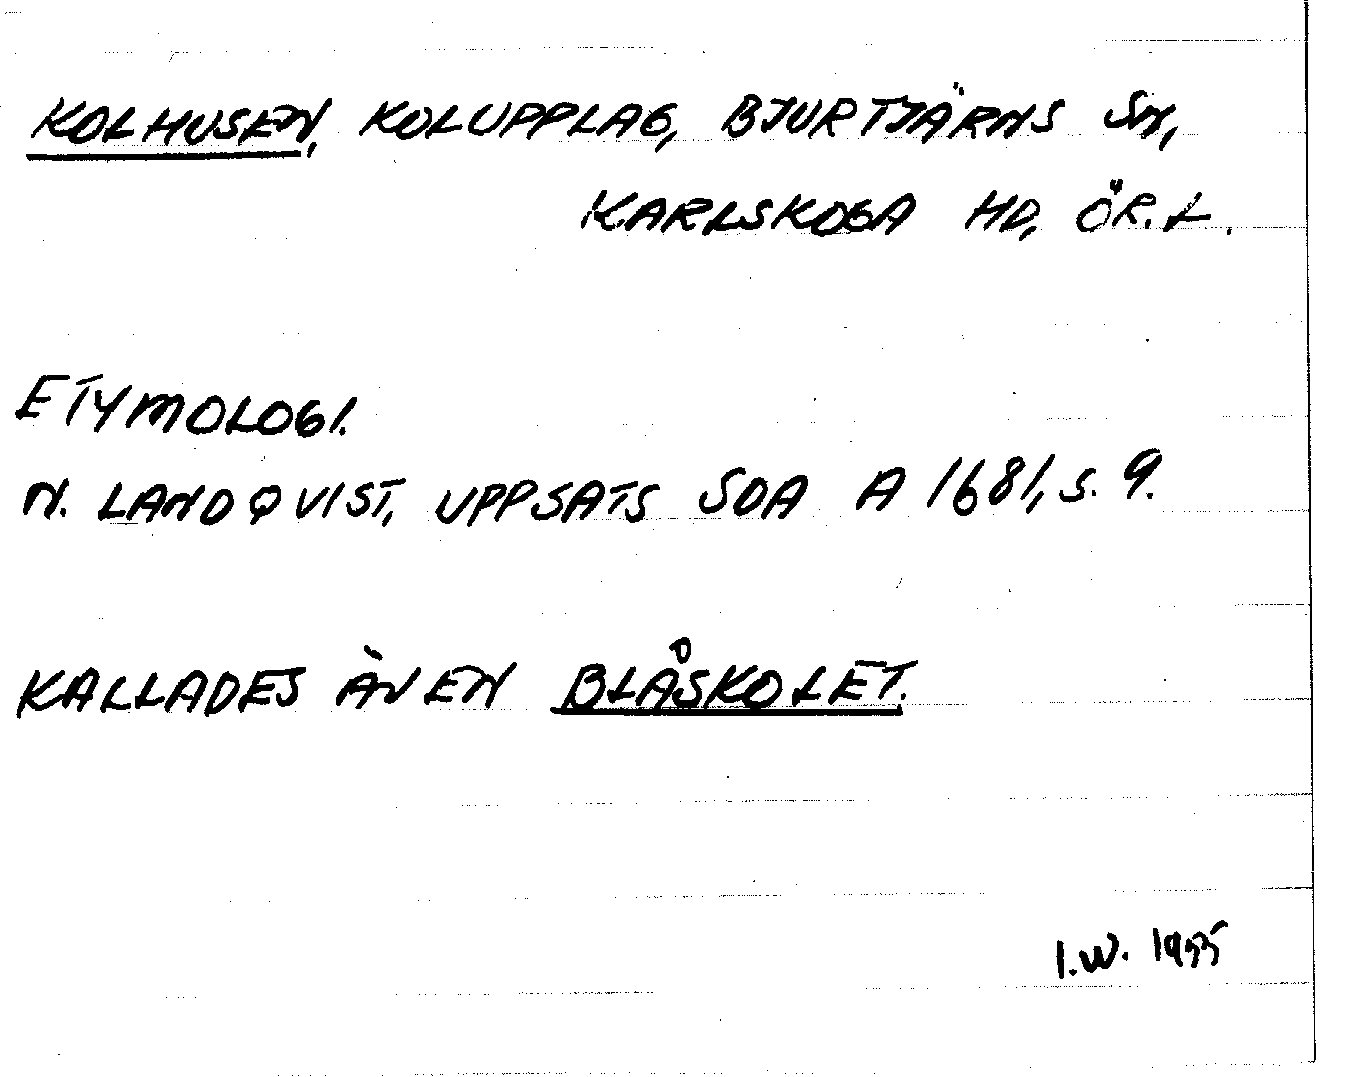 KOLHUSEN, KOLUPPLAG, BJURTJÄRNS SN,
KARLSKOGA HD, ÖR. L.
ETYMOLOGI.
N. LANDQVIST, UPPSATS SOA A 1681, S. 9.
KALLADES ÄVEN BLÅSKOLET.
I.W. 1955